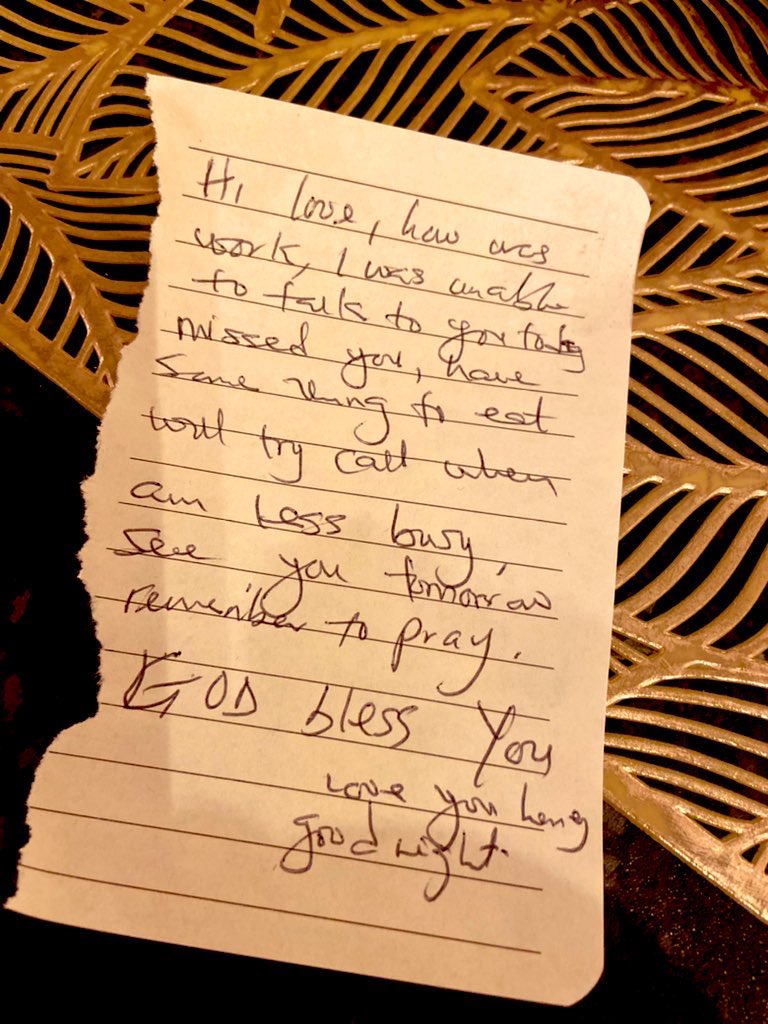 Hi love, how was
work, I was unable
to talk to you today
missed you, have
some thing to eat
will try call when
am less busy,
see you tomorrow
remember to pray.
GOD bless You
Love you hony
good night.